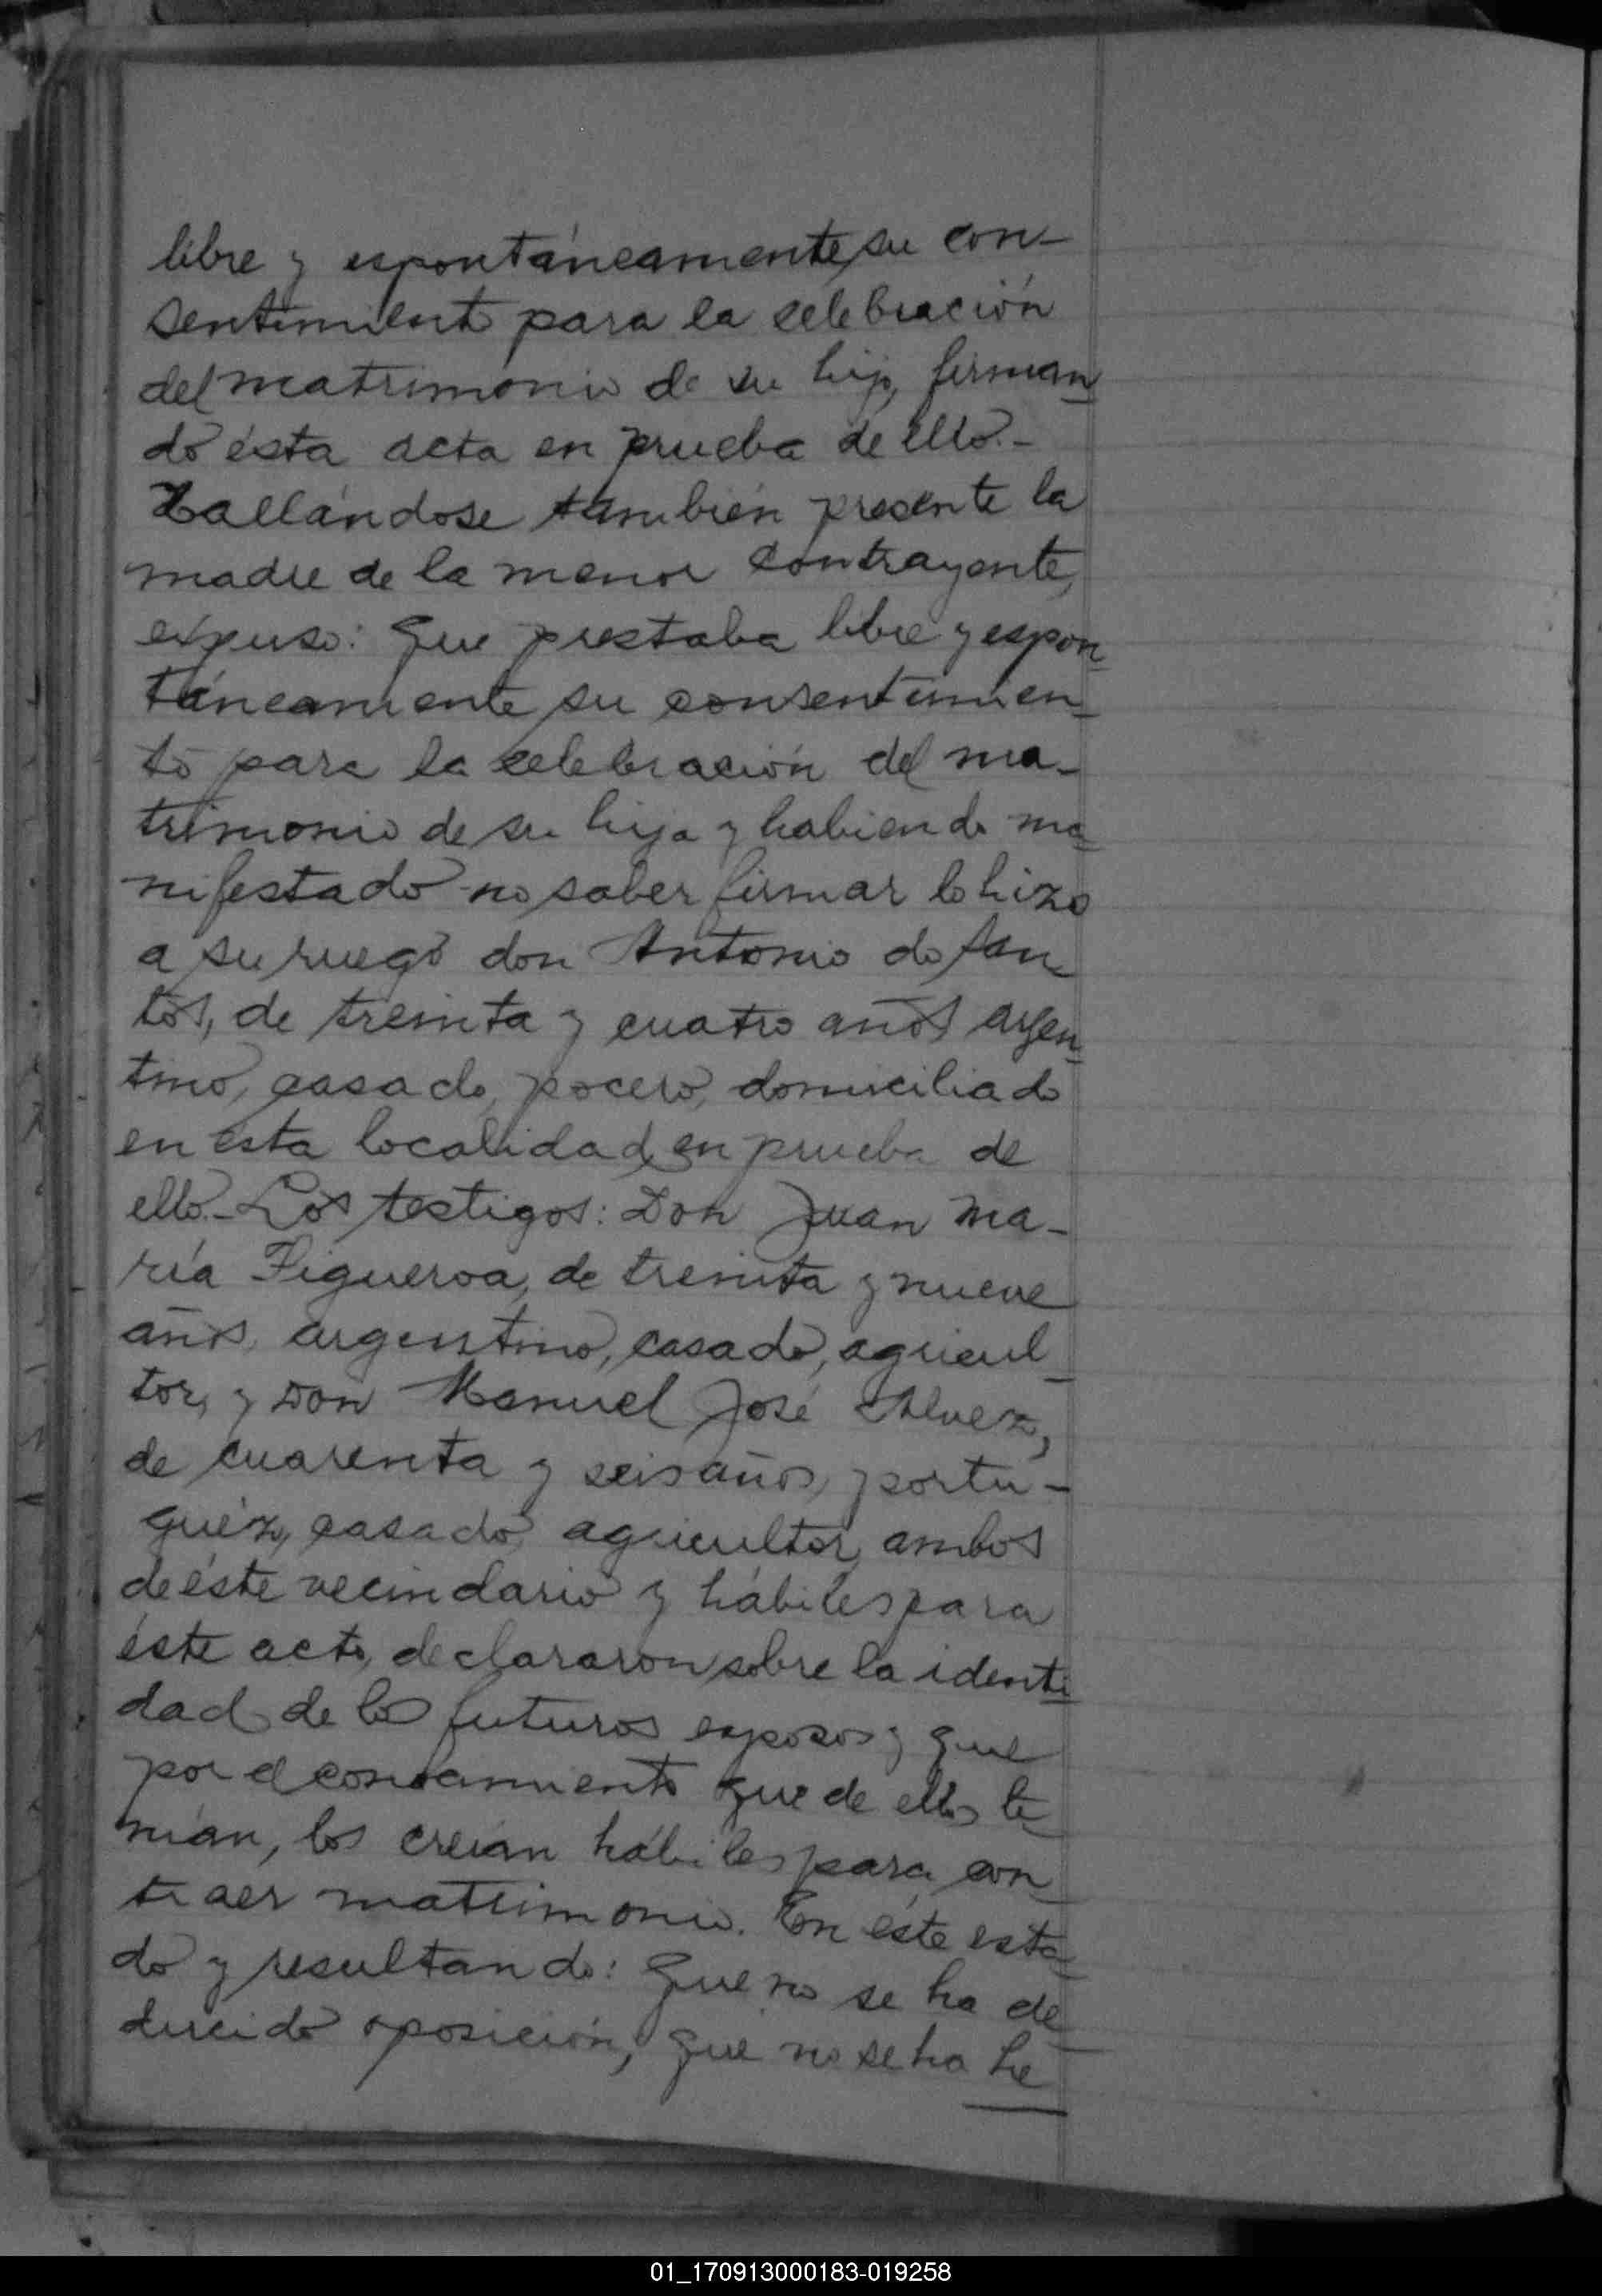 libre y espontáneamente, su con-
sentimiento para la celebración
del matrimonio de su hijo, firman-
do ésta acta en prueba de ello.-
Hallándose también presente la
madre de la menor contrayente,
expuso: Que prestaba libre y espon-
táneamente su consentimien-
to para la celebración del ma-
trimonio de su hija y habiendo ma-
nifestado no saber firmar lo hizo
a su ruego don Antonio do San-
tos, de treinta y cuatro años, argen-
tino, casado, pocero, domiciliado
en ésta localidad, en prueba de
ello.- Los testigos: Don Juan Ma-
ría Figueroa, de treinta y nueve
años, argentino, casado, agricul-
tor, y Don Manuel José Alvez,
de cuarenta y seis años, portu-
guéz, casado, agricultor, ambos
de éste vecindario y hábiles para
éste acto, declararon sobre la identi-
dad de los futuros esposos y que
por el conocimiento que de ellos te-
nían, los creían hábiles para con-
traer matrimonio. En éste esta-
do y resultando: Que no se ha de-
ducido oposición, que no se ha he-
01_170913000183-019258